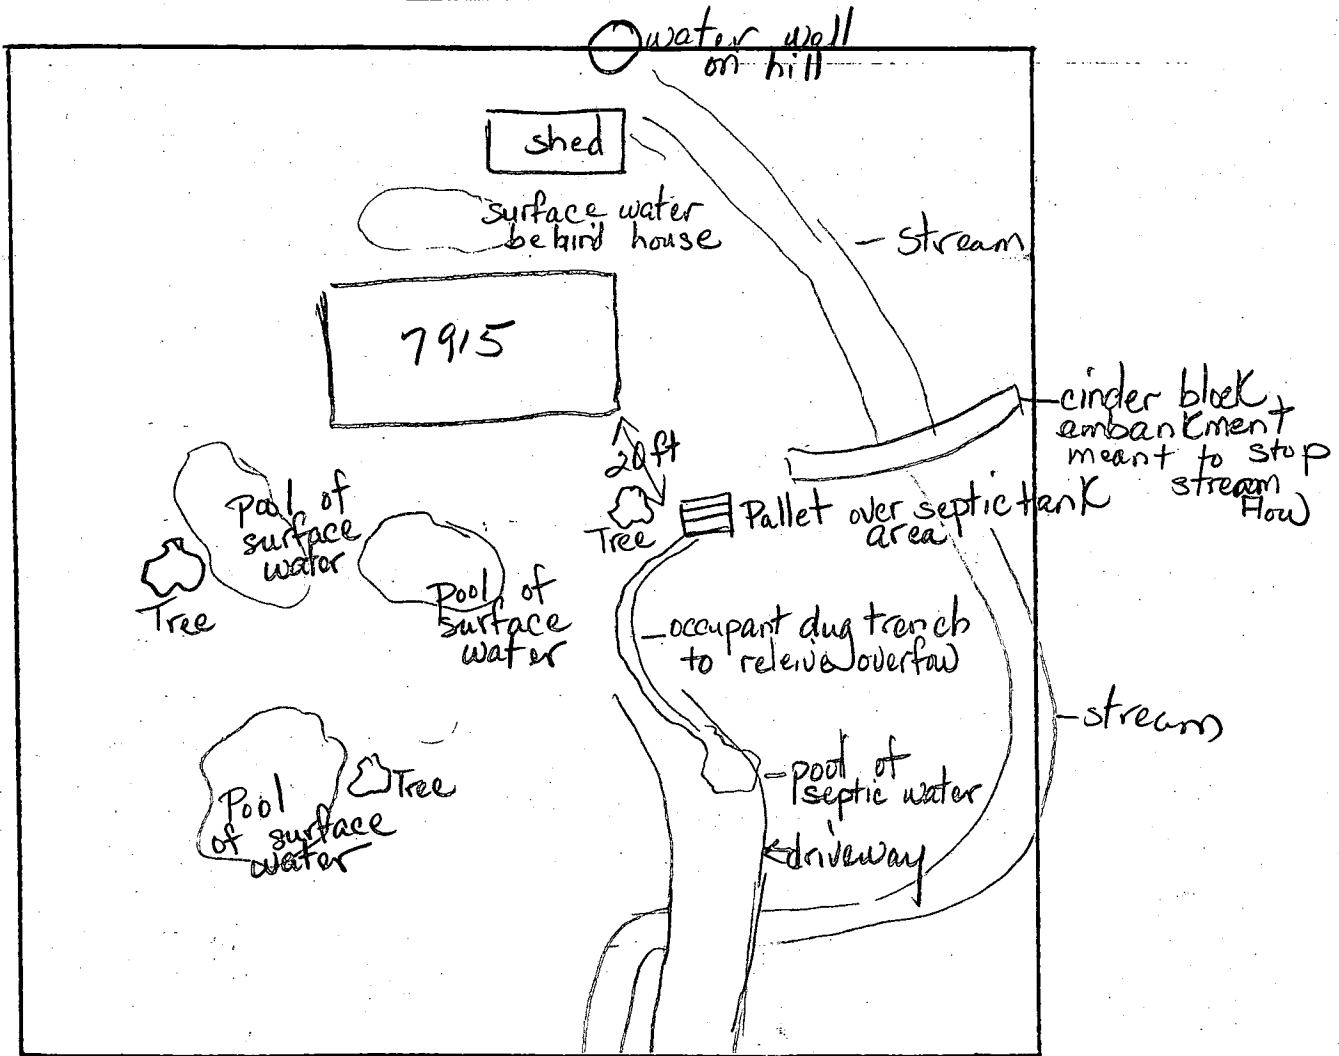 water well
on hill
shed
surface water
behind house
stream
7915
cinder block
embankment
meant to stop
stream
flow
20 ft
Pallet over septic tank
area
Tree
Pool of
surface
water
Tree
Pool of
surface
water
occupant dug trench
to releive overfow
stream
Pool
of surface
water
Tree
pool of
septic water
driveway